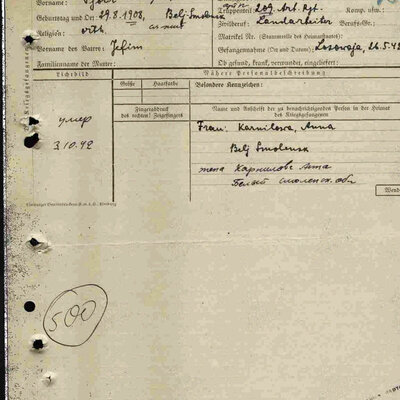 Vorname:
Geburtstag und Ort: 29.8.1908, Belj-Smolensk
Religion: orth.
Vorname des Vaters: Jefim
Familienname der Mutter:
Truppenteil: 209. Art. Rgt. Komp. usw.:
Zivilberuf: Landarbeiter Berufs-Gr.:
Matrikel Nr. (Stammrolle des Heimatstaates):
Gefangennahme (Ort und Datum): Losowaja, 26.5.42
Ob gesund, krank, verwundet, eingeliefert:
Lichtbild
Nähere Personalbeschreibung
Größe
Haarfarbe
Besondere Kennzeichen:
Fingerabdruck
des rechten! Zeigefingers
Name und Anschrift der zu benachrichtigenden Person in der Heimat
des Kriegsgefangenen
умер
3.10.42
Frau: Karnilowa, Anna
Belj Smolensk
жена Карнилова Анна
Белый смоленск. обл
Wend
500